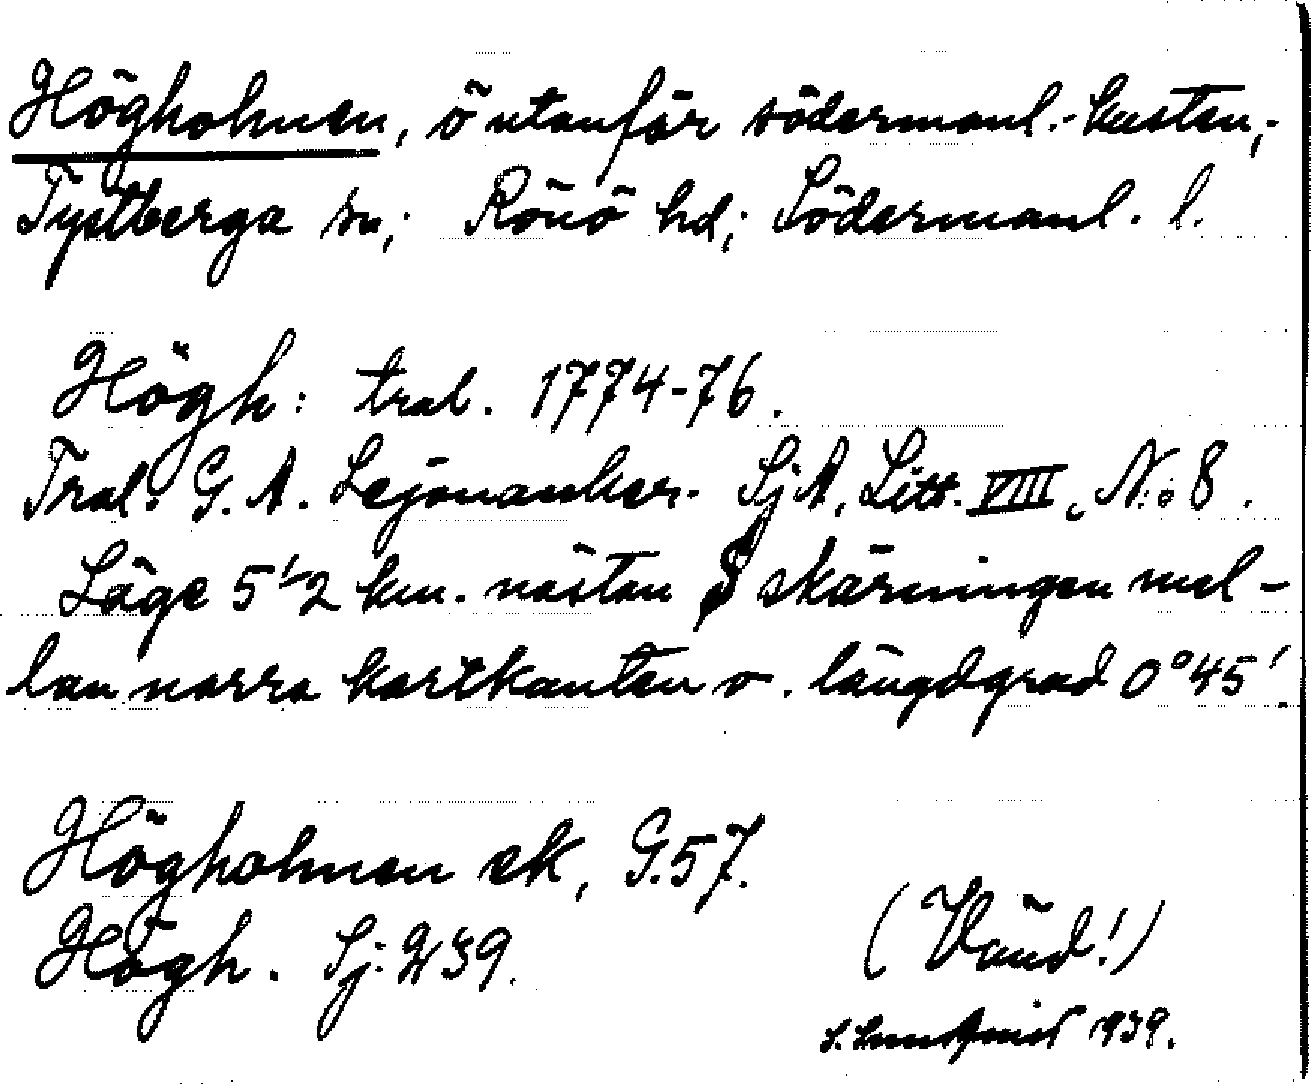 Högholmen, ö utanför södermanl.-kusten,-
Tystberga sn; Rönö hd; Södermanl. l.
Högh: tral. 1774-76.
Tral. G. A. Lejonanker. SjA, Litt. VIII, N:o 8.
Läge 5 1/2 km. nästan S skärningen mel-
lan norra kartkanten o. längdgrad 0°45'.
Högholmen ek, G.57.
Högh. Sj: 239.
(Vänd!)
S. Lundqvist 1939.